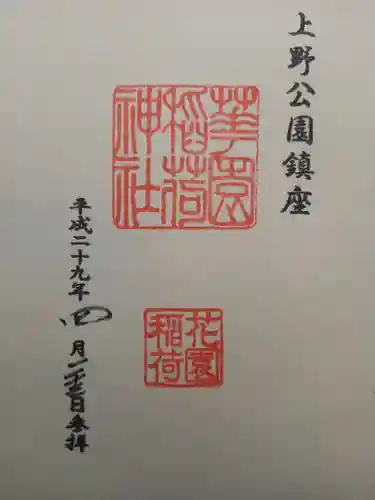 上野公園鎮座
華園
稲荷
神社
花園
稲荷
平成二十九年四月二十三日参拝